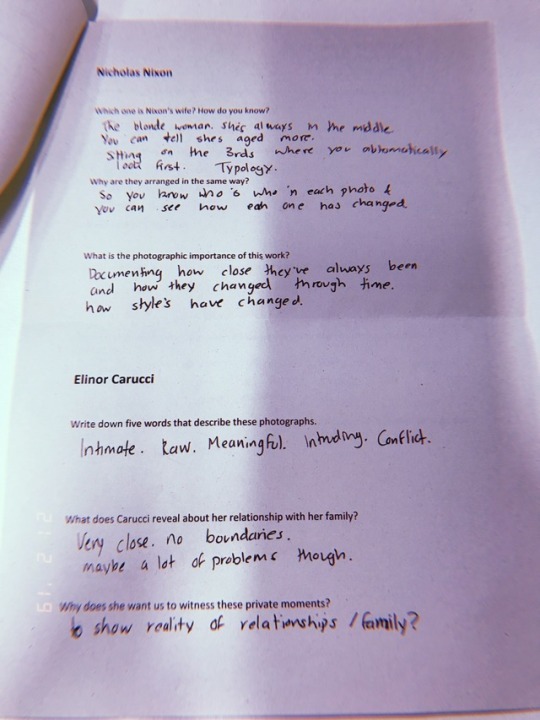 Nicholas Nixon
Which one is Nixon's wife? How do you know?
The blonde woman. She's always in the middle
You can tell shes aged more.
Sitting on the 3rds where you automatically
look first. Typology.
Why are they arranged in the same way?
So you know who is who in each photo &
you can see how each one has changed
What is the photographic importance of this work?
Documenting how close they've always been
and how they changed through time.
how style's have changed.
Elinor Carucci
Write down five words that describe these photographs.
Intimate. Raw. Meaningful. Intruding. Conflict.
What does Carucci reveal about her relationship with her family?
Very close. no boundaries.
maybe a lot of problems though.
Why does she want us to witness these private moments?
to show reality of relationships / family?
21 2 '19